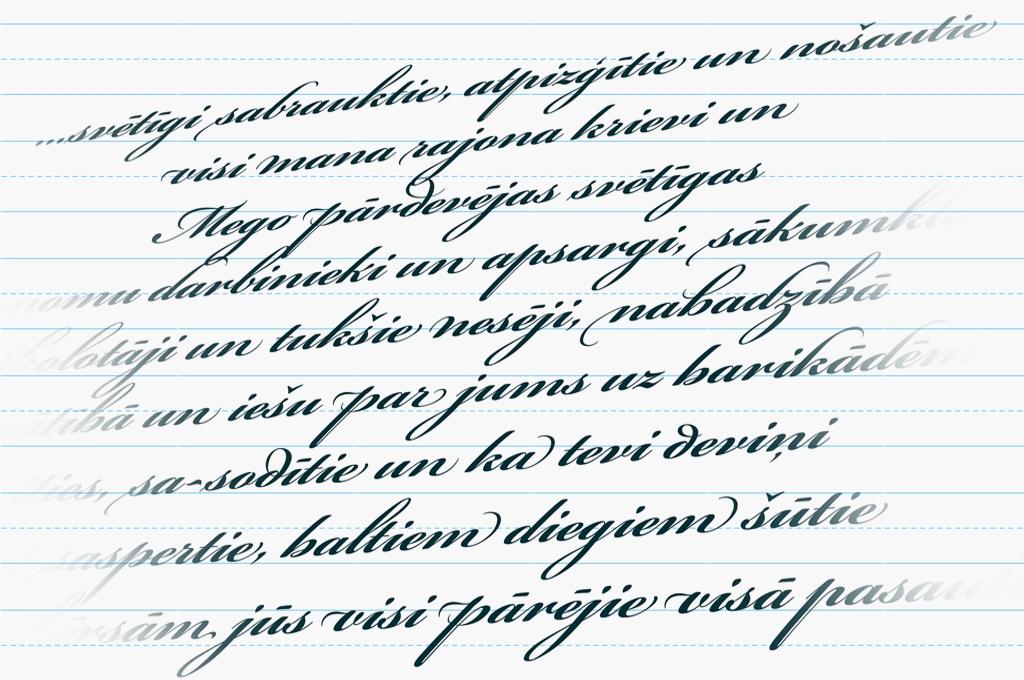 ...svētīgi sabrauktie, atpizģītie un nošautie
visi mana rajona krievi un
Mego pārdevējas svētīgas
darbinieki un apsargi, sākumk
un tukšie nesēji, nabadzībā
un iešu par jums uz barikādēm
sa-sodītie un ka tevi deviņi
saspertie, baltiem diegiem šūtie
jūs visi pārējie visā